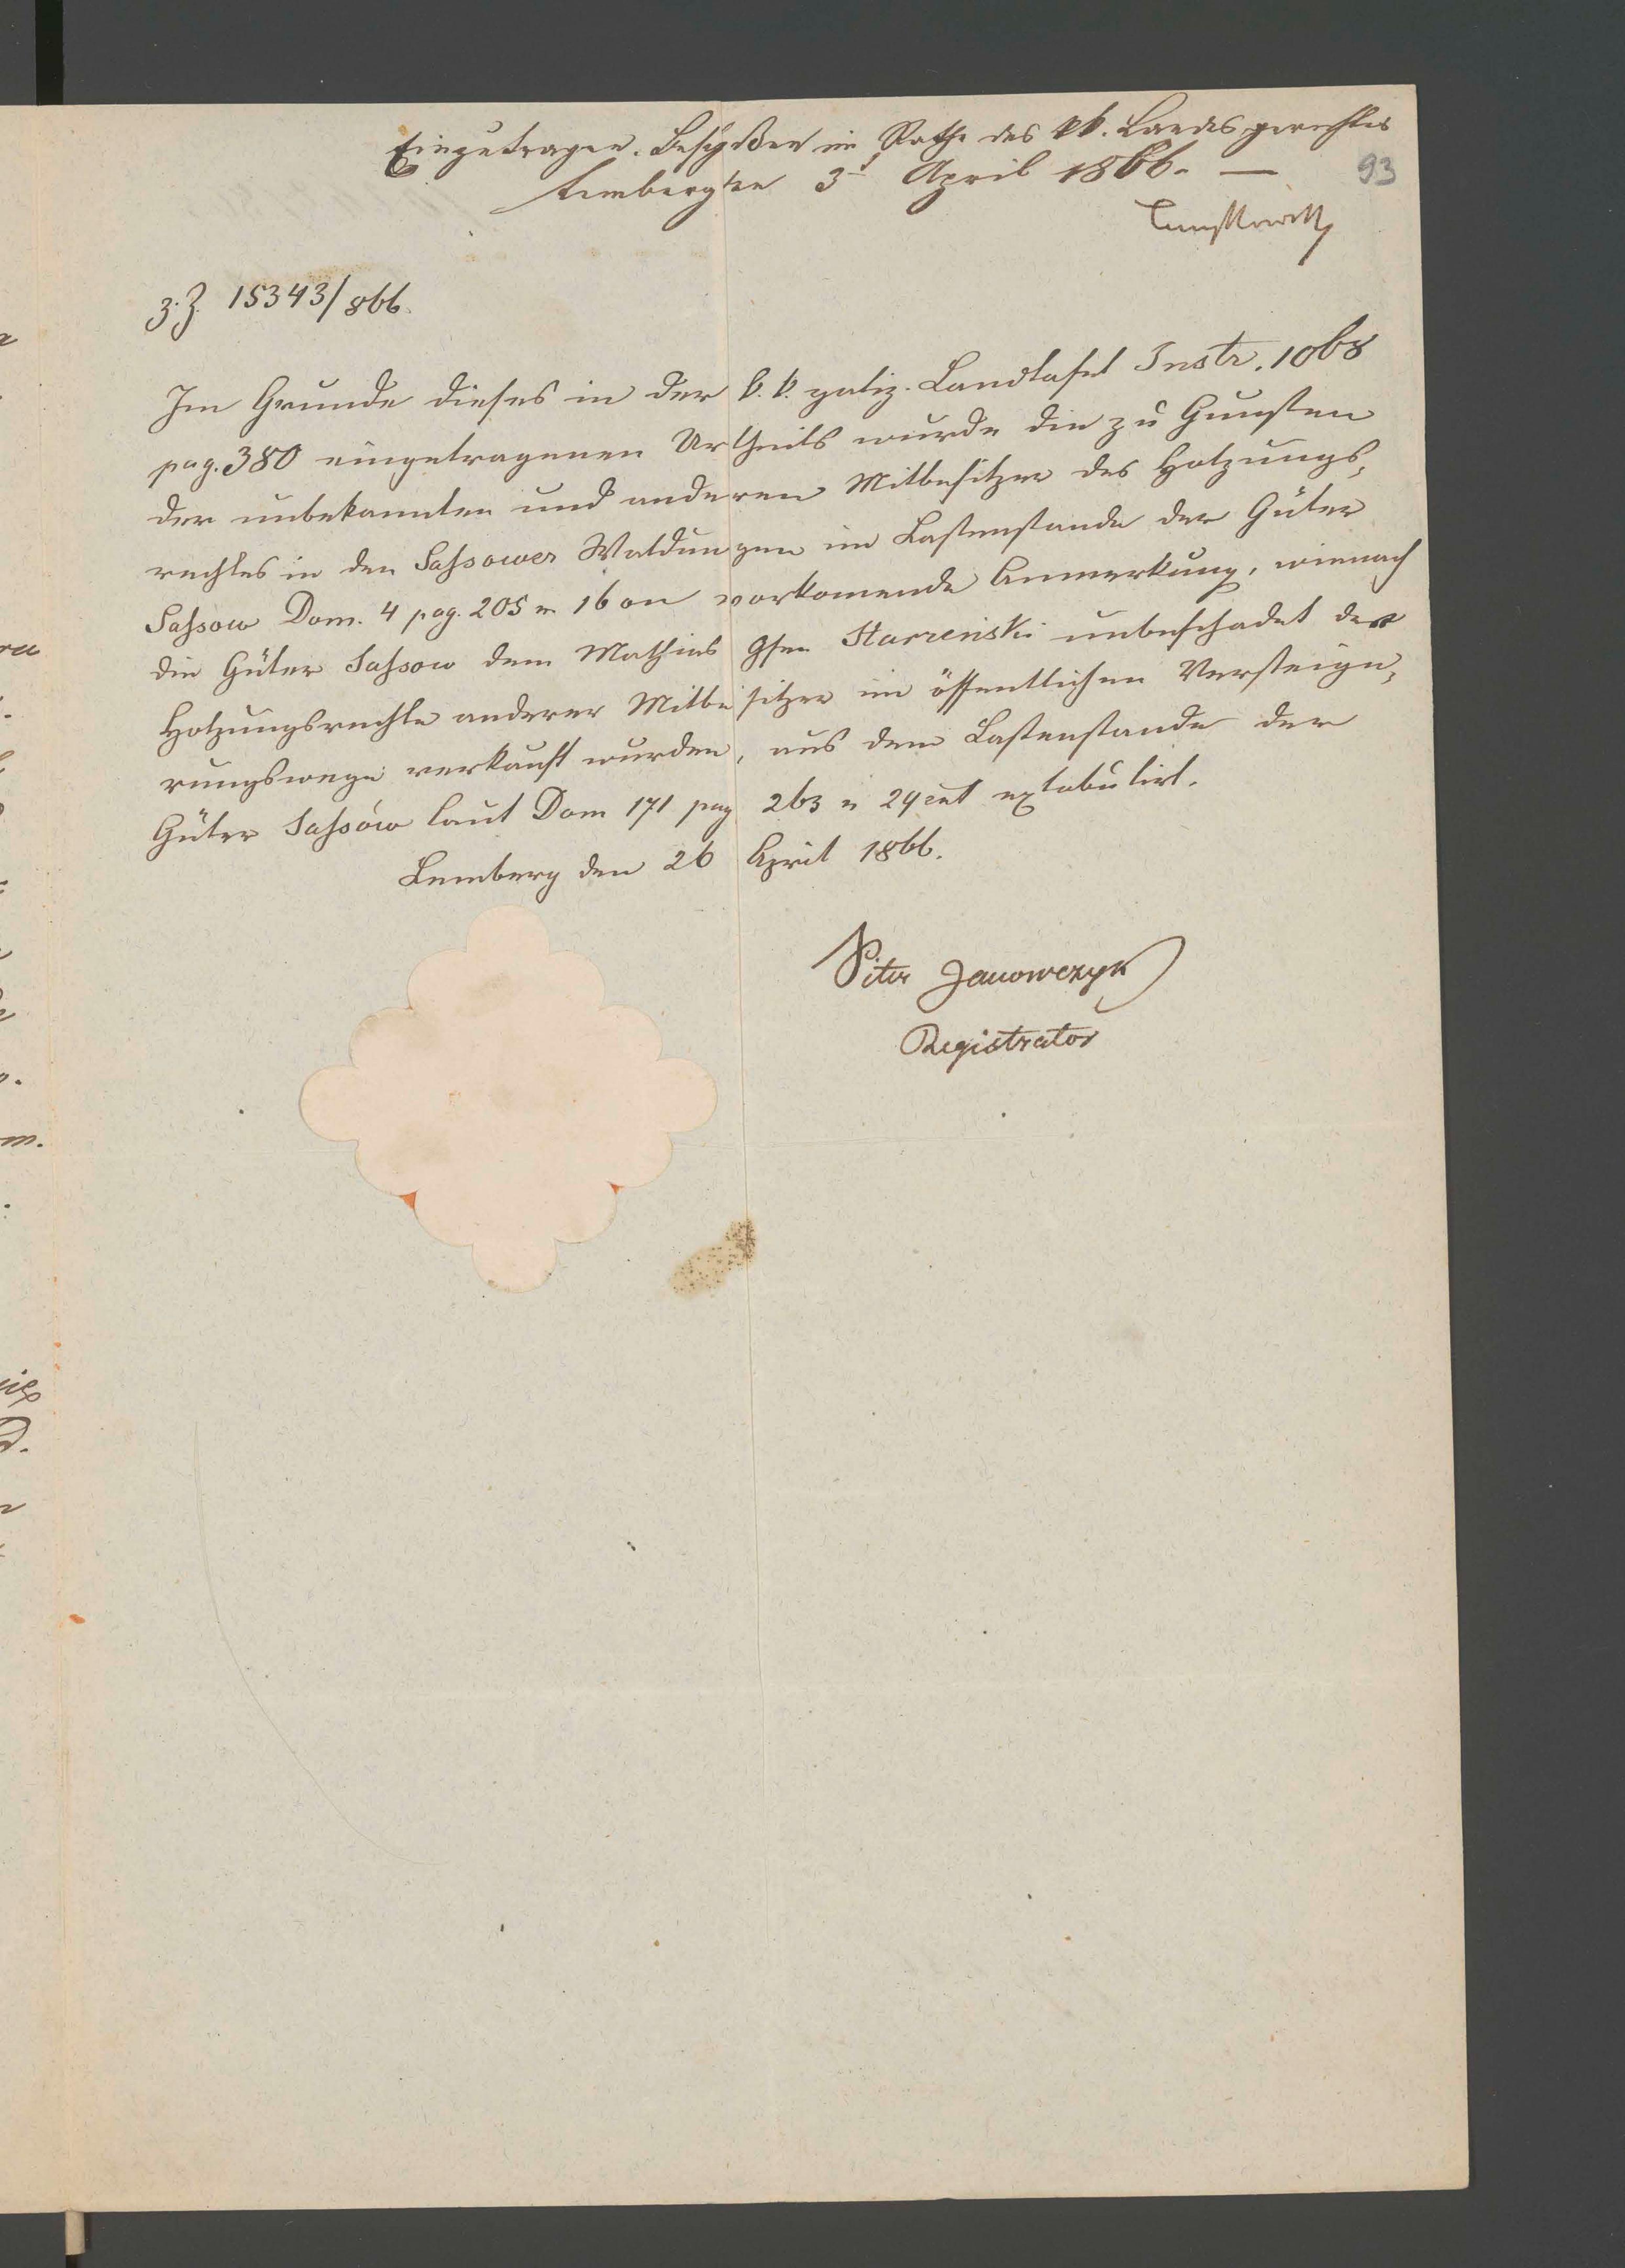 Einzutragen. Beschloßen im Rathe des kk. Landesgerichtes
93
Lemberg den 3t April 1866. —
z. Z. 15343/866.
Im Grunde dieses in der k. k. galiz. Landtafel Instr. 1068
pag. 380 eingetragenen Urtheils wurde die zu Gunsten
der unbekannten und anderen Mitbesitzer des Holzungs-
rechtes in den Saßower Waldungen im Lastenstande der Güter
Saßow Dom. 4 pag. 205 n 16 on vorkomende Anmerkung, wienach
die Güter Saßow dem Mathias Gfen Starzeński unbeschadet der
Holzungsrechte anderer Mitbesitzer im öffentlichen Versteige-
rungswege verkauft wurden, aus dem Lastenstande der
Güter Saßów laut Dom 171 pag 263 n 29 ext extabulirt.
Lemberg den 26 April 1866.
Piter Janowczyk
Registrator